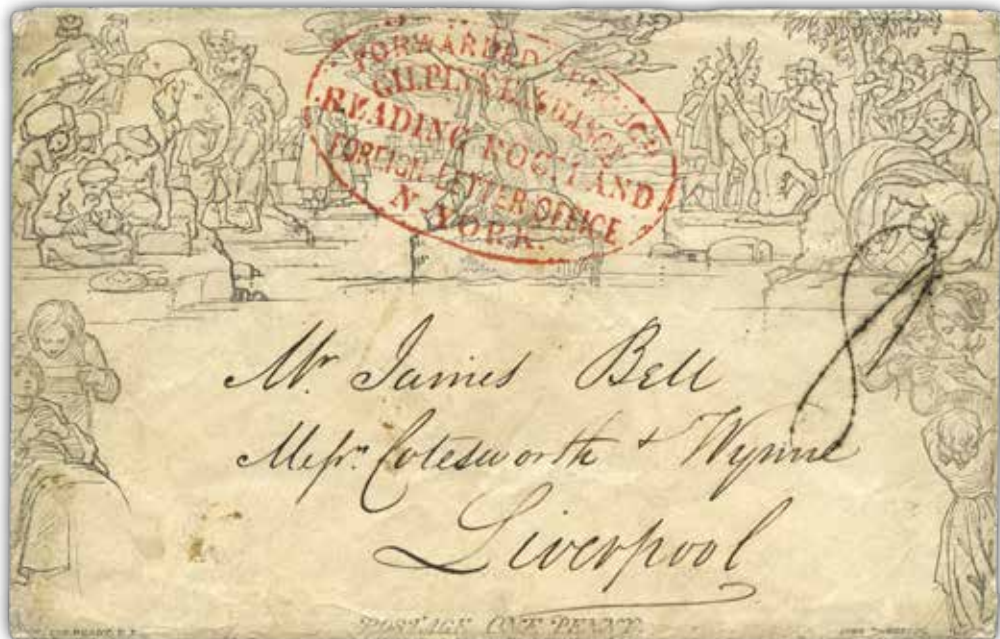 FORWARDED THROUGH
GILPIN'S EXCHANGE
READING ROOM AND
FOREIGN LETTER OFFICE
N. YORK.
8
Mr. James Bell
Messrs. Cotesworth & Wynne
Liverpool
POSTAGE ONE PENNY.